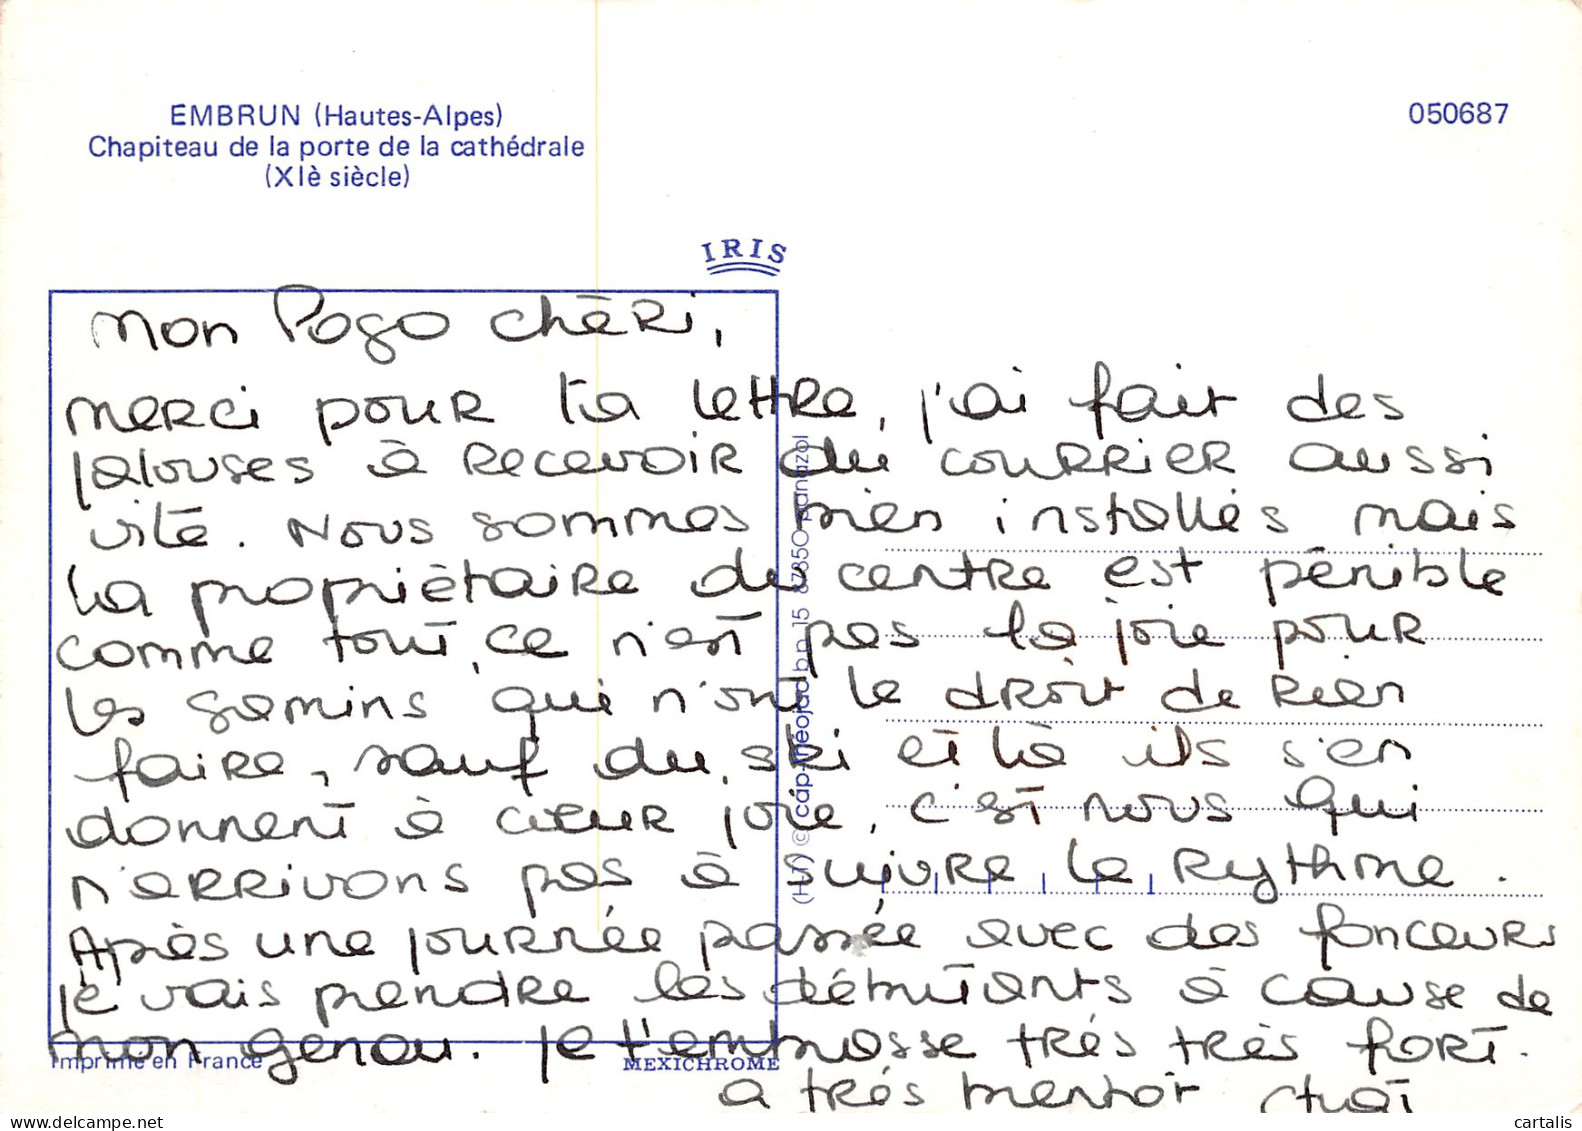 EMBRUN (Hautes-Alpes)
Chapiteau de la porte de la cathédrale
(XIè siècle)
050687
IRIS
Mon Pogo chéri,
merci pour ta lettre, j'ai fait des
jalouses à recevoir du courrier aussi
vite. Nous sommes bien installés mais
la propriétaire du centre est pénible
comme tout, ce n'est pas la joie pour
les gamins qui n'ont le droit de rien
faire, sauf du ski et là ils s'en
donnent à cœur joie, c'est nous qui
n'arrivons pas à suivre le rythme.
Après une journée passée avec des fonceurs
je vais prendre les débutants à cause de
mon genou. Je t'embrasse très très fort.
a très bientôt
(H.T) © cap-théojac b.p. 15 87850 panazol
Imprimé en France
MEXICHROME
cartalis
www.delcampe.net